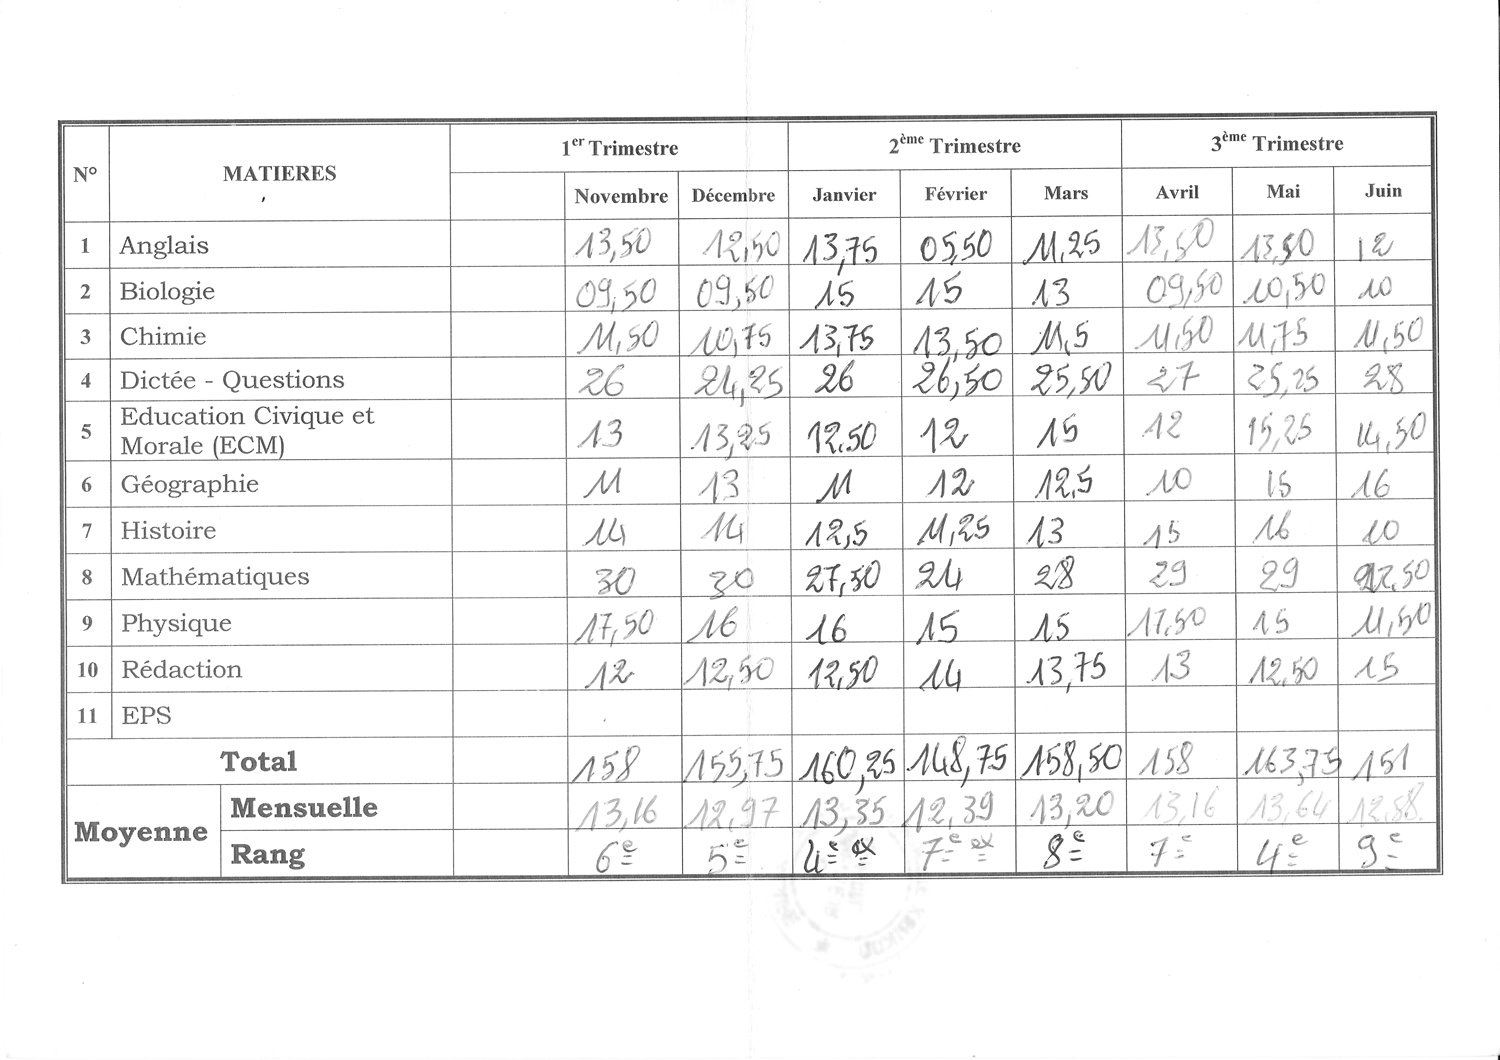 N° MATIERES 1er Trimestre 2ème Trimestre 3ème Trimestre
Novembre Décembre Janvier Février Mars Avril Mai Juin
1 Anglais 13,50 12,50 13,75 05,50 11,25 13,50 13,50 12
2 Biologie 09,50 09,50 15 15 13 09,50 10,50 10
3 Chimie 11,50 10,75 13,75 13,50 11,5 11,50 11,75 11,50
4 Dictée - Questions 26 24,25 26 26,50 25,50 27 25,25 28
5 Education Civique et
Morale (ECM) 13 13,25 12,50 12 15 12 15,25 14,50
6 Géographie 11 13 11 12 12,5 10 15 16
7 Histoire 14 14 12,5 11,25 13 15 16 10
8 Mathématiques 30 30 27,50 24 28 29 29 22,50
9 Physique 17,50 16 16 15 15 17,50 15 11,50
10 Rédaction 12 12,50 12,50 14 13,75 13 12,50 15
11 EPS
Total 158 155,75 160,25 148,75 158,50 158 163,75 151
Moyenne
Mensuelle 13,16 12,97 13,35 12,39 13,20 13,16 13,64 12,58
Rang 6e 5e 4e ex 7e ex 8e 7e 4e 9e